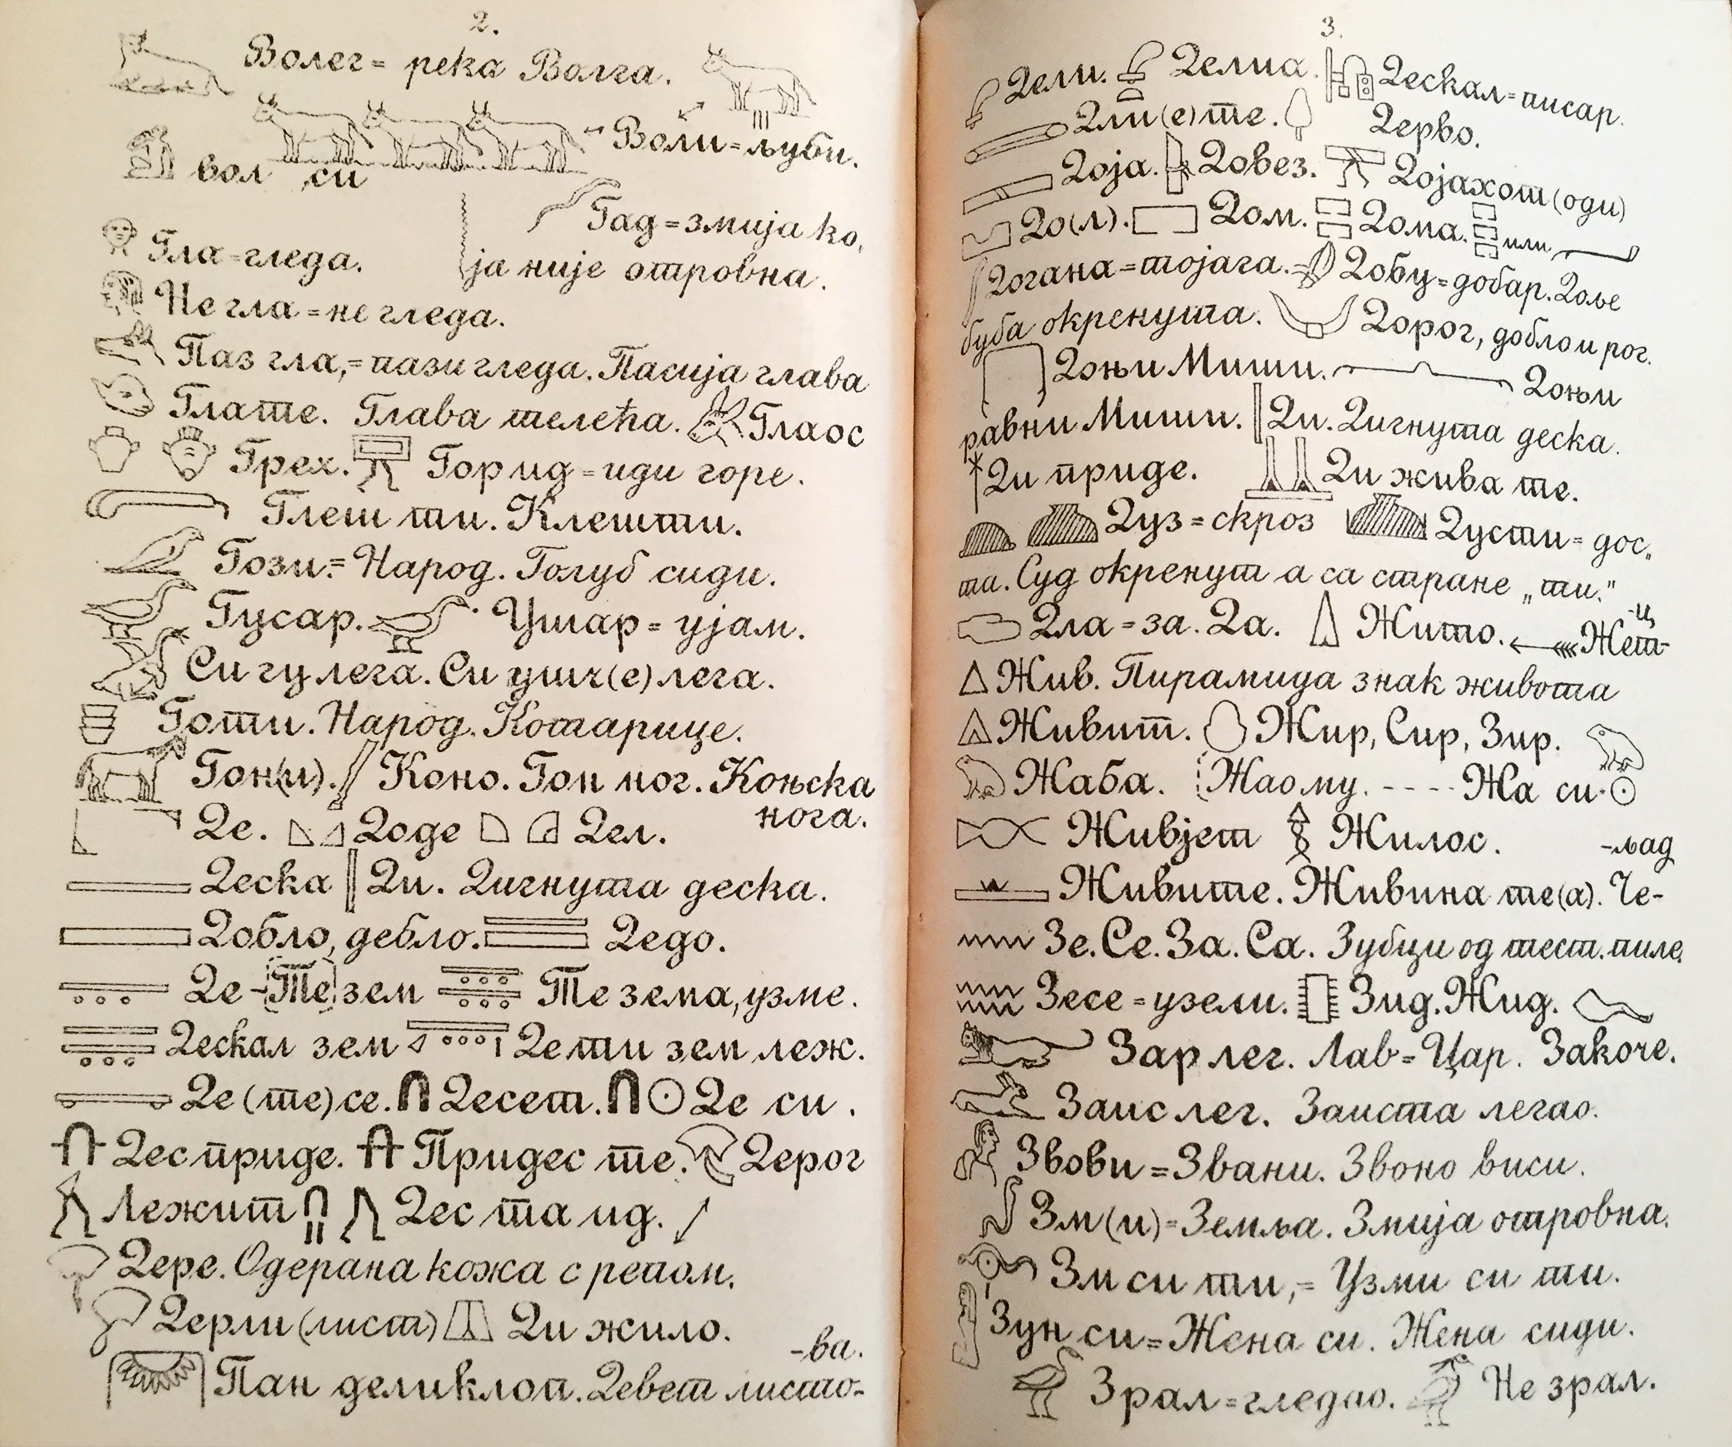 2.
Волег = река Волга.
Воли = љуби.
вол си
Гад = змија ко,
Гла = гледа.
ја није отровна.
Не гла = не гледа.
Паз гла, = пази гледа. Пасија глава
Глате. Глава телећа. Глаос
Грех. Гор ид = иди горе.
Глеш ти. Клешти.
Гози. = Народ. Голуб сиди.
Гусар. Ушар = ујам.
Си гу лега. Си ушч(е) лега.
Готи. Народ. Котарице.
Гон(и). Коно. Гон ног. Коњска
нога.
Де. Доде Дел.
Деска Ди. Дигнута деска.
Добло, дебло. Дедо.
Де - Те зем Те зема, узме.
Дескал зем Дети зем леж.
Де (те) се. Десет. Де си.
Дес приде. Придес те. Дерог
Лежит Дес та ид.
Дере. Одерана кожа с репом.
Дерли (лист) Ди жило.
-ва.
Пан деликлоп. Девет листо-
3.
Дели. Делиа. Дескал = писар.
Дли(е)те. Дерво.
Доја. Довез. Дојахот (оди)
До(л). Дом. Дома. или
Догана = тојага. Добу = добар. Доље
буба окренута. Дорог, добло и рог.
Доњи Миши. Доњи
равни Миши. Ди. Дигнута деска.
Ди приде. Ди жива те.
Дуз = скроз Дусти = дос„
та. Суд окренут а са стране „ти."
-ц
Дла = за. Да. Жито. Жет-
Жив. Пирамида знак живота
Живит. Жир, Сир, Зир.
Жаба. Жаому. - - - - Жа си.
Живјет Жилос.
-љад
Живите. Живина те(а). Че-
Зе. Се. За. Са. Зубци од тест. пиле.
Зесе = узели. Зид. Жид.
Зар лег. Лав = Цар. Закоче.
Заис лег. Заиста легао.
Звови = Звани. Звоно виси.
Зм(и) = Земља. Змија отровна.
Зм си ти, = Узми си ти.
Зун си = Жена си. Жена сиди.
Зрал = гледао. Не зрал.